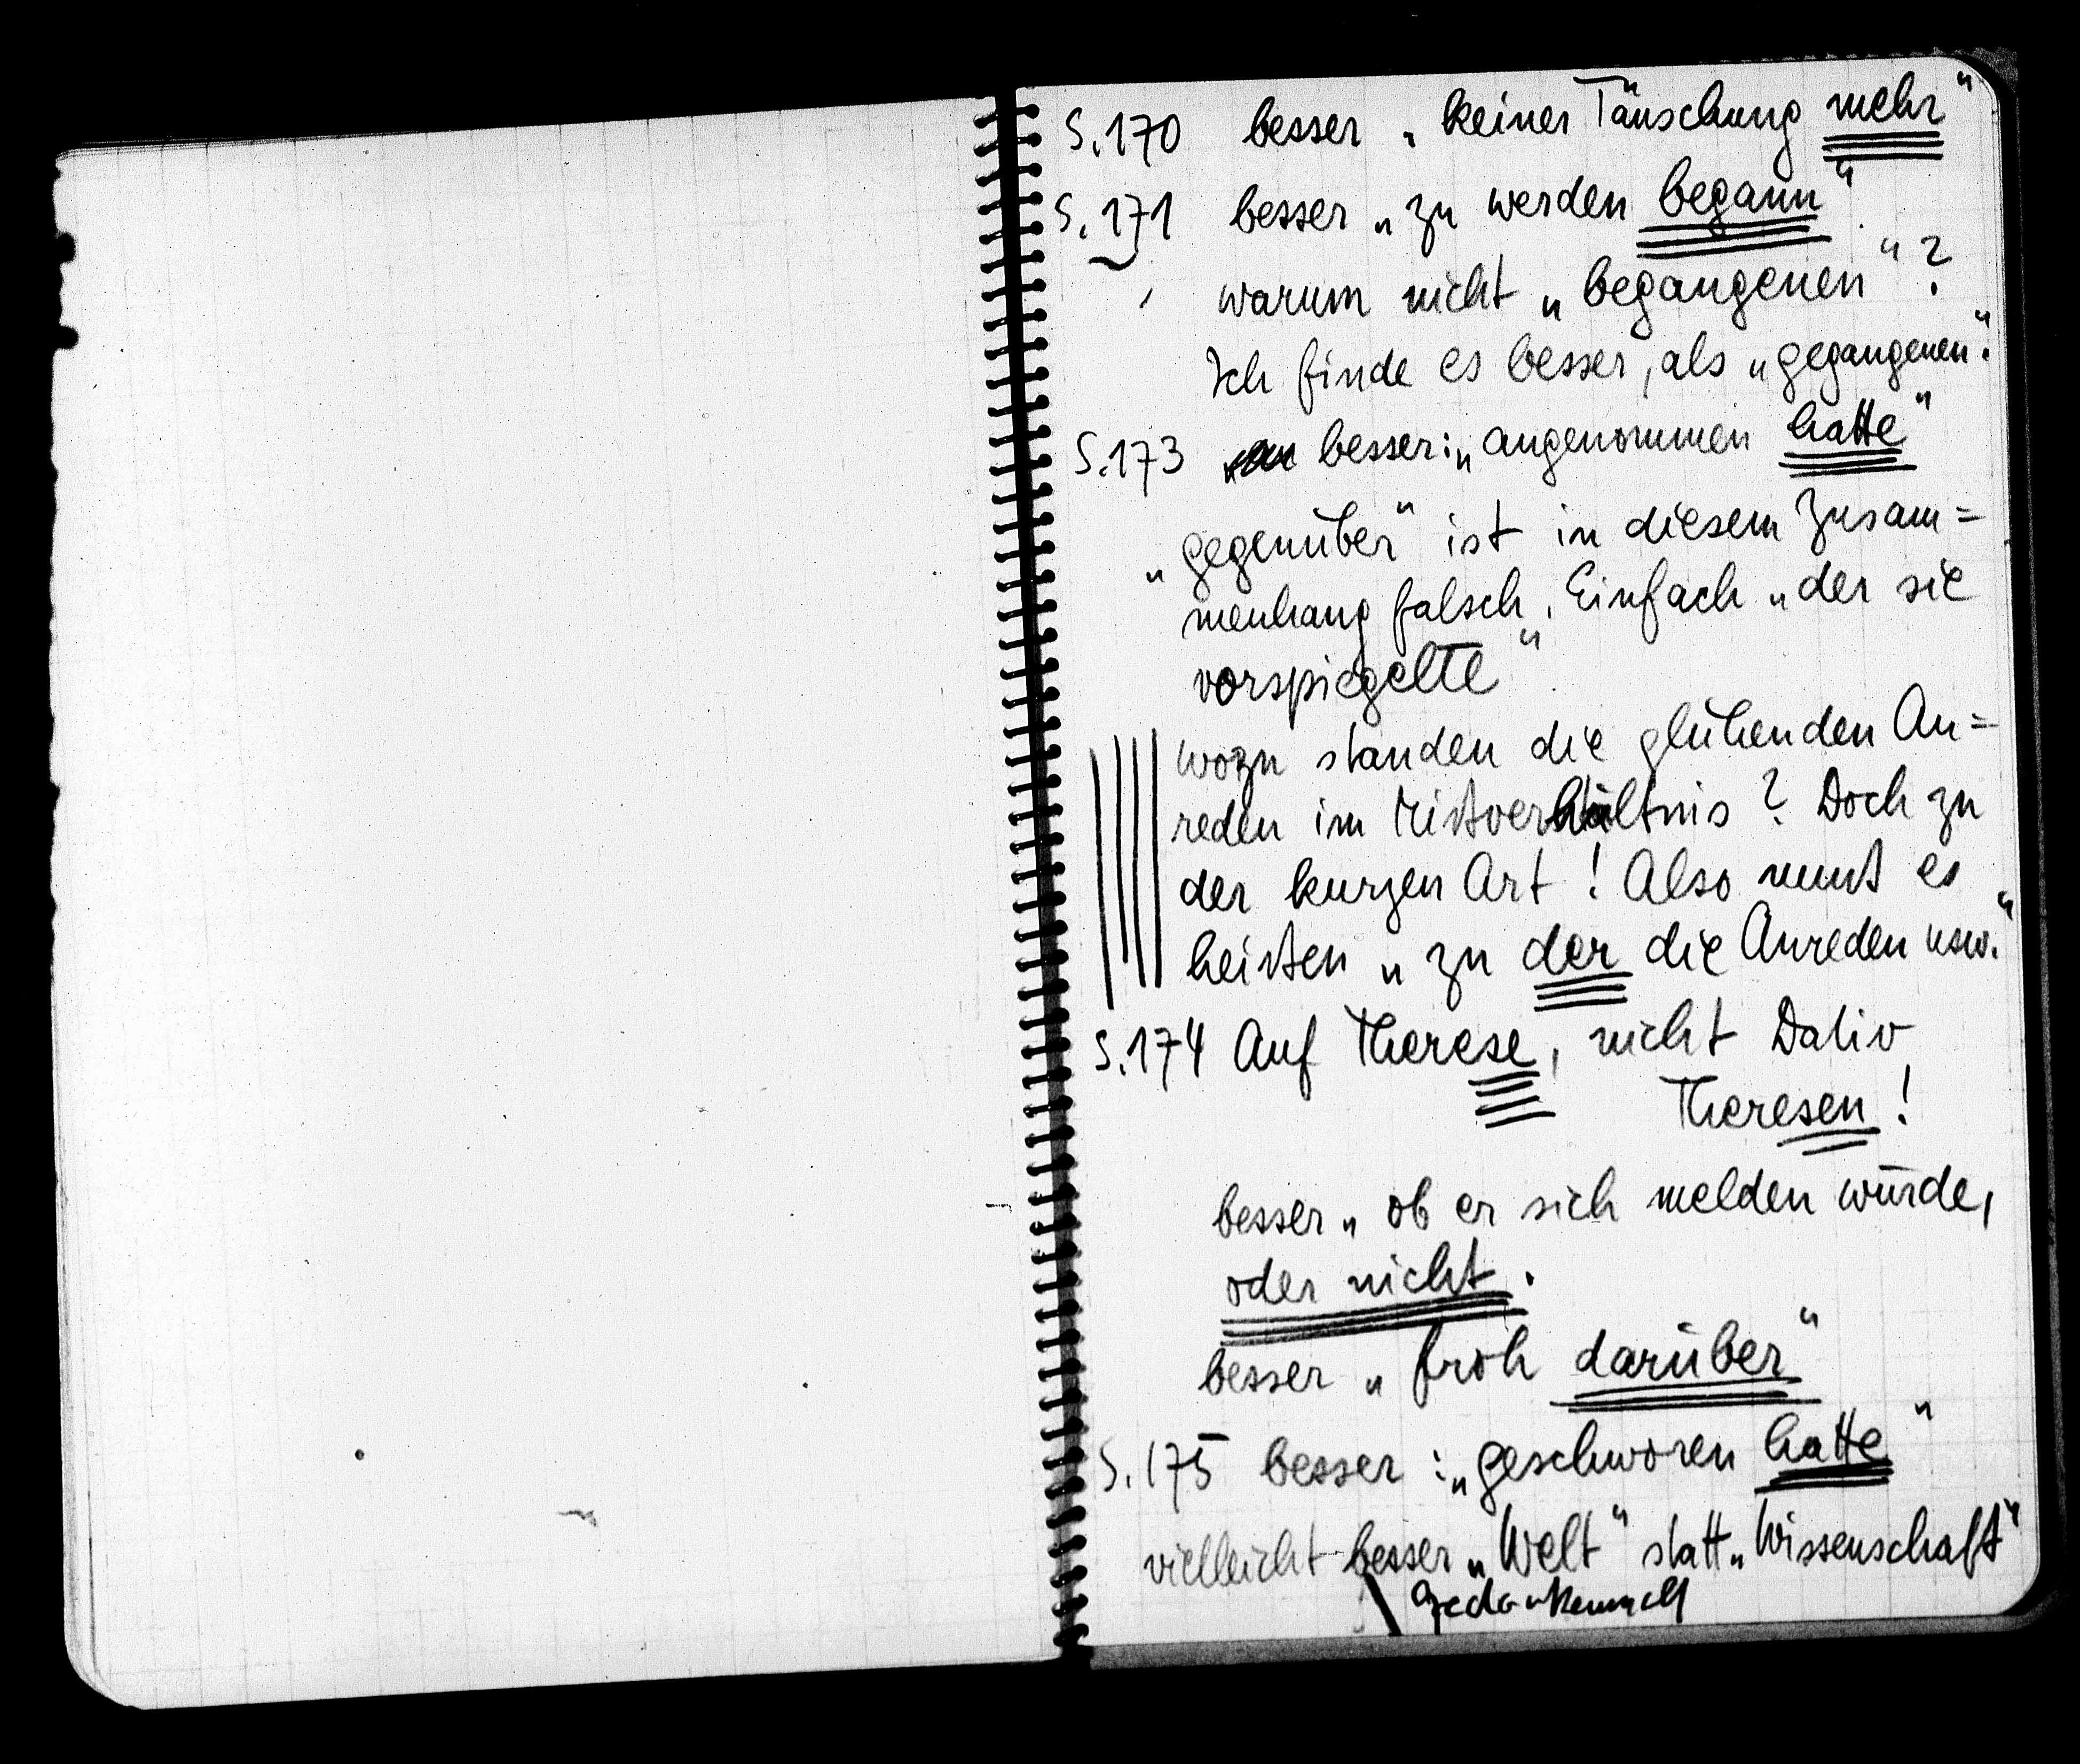 S. 170 besser „keiner Täuschung mehr"
S. 171 besser „zu werden begann"
warum nicht „begangenen"?
Ich finde es besser, als „gegangenen".
S. 173 besser: „angenommen hatte"
„gegenüber" ist in diesem Zusam=
menhang falsch. Einfach „der sie
vorspiegelte".
wozu standen die glühenden An=
reden im Mißverhältnis? Doch zu
der kurzen Art! Also muß es
heißen „zu der die Anreden usw."
S. 174 Auf Therese, nicht Dativ
Theresen!
besser „ob er sich melden würde,
oder nicht.
besser „froh darüber"
S. 175 besser: „geschworen hatte"
vielleicht besser „Welt" statt „Wissenschaft"